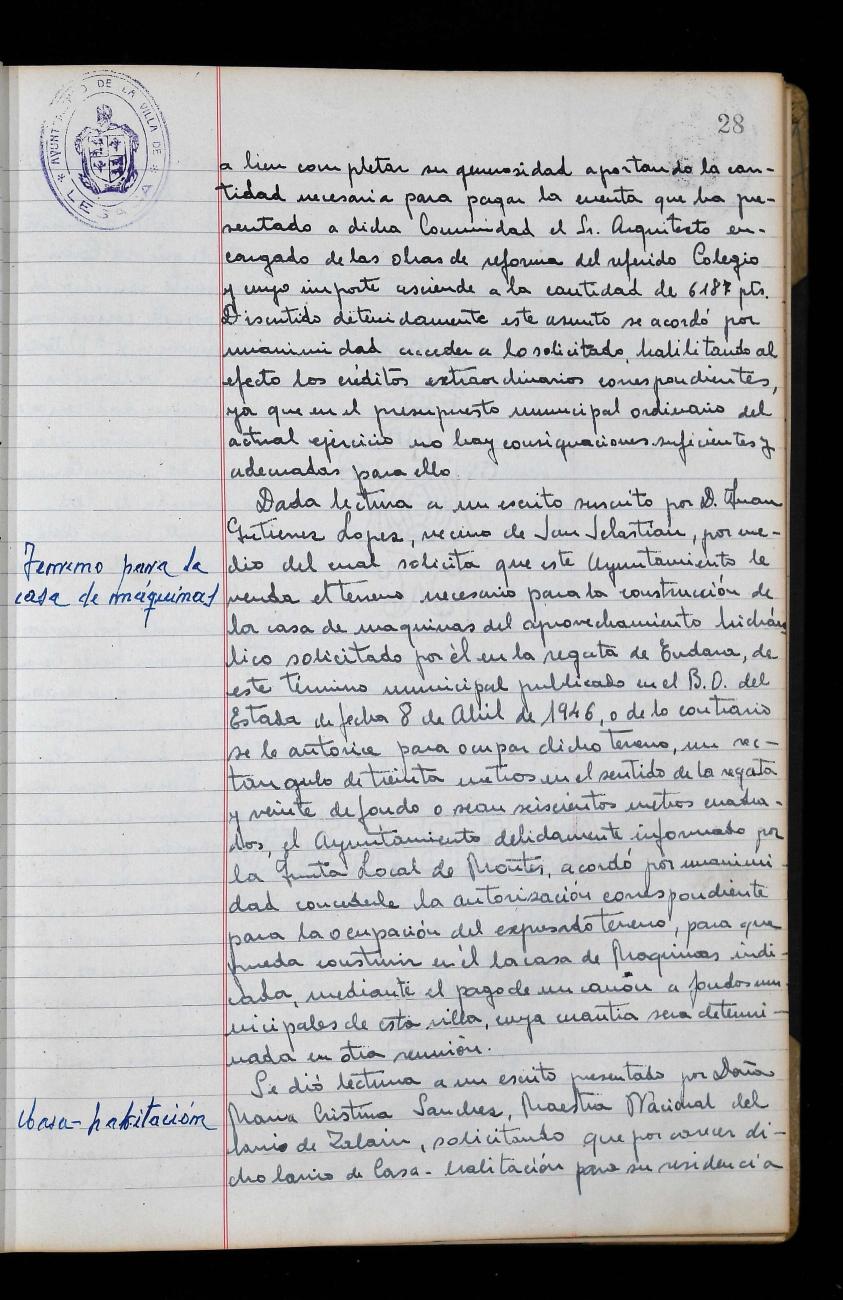 AYUNTAMIENTO DE LA VILLA DE
* LESACA *
28
a bien completar su generosidad aportando la can-
tidad necesaria para pagar la cuenta que ha pre-
sentado a dicha Comunidad el Sr. Arquitecto en-
cargado de las obras de reforma del referido Colegio
y cuyo importe asciende a la cantidad de 6187 pts.
Discutido detenidamente este asunto se acordó por
unanimidad acceder a lo solicitado, habilitando al
efecto los créditos extraordinarios correspondientes,
ya que en el presupuesto municipal ordinario del
actual ejercicio no hay consignaciones suficientes y
adecuadas para ello.
Dada lectura a un escrito suscrito por D. Juan
Gutierrez Lopez, vecino de San Sebastian, por me-
Terreno para la
casa de máquinas
dio del cual solicita que este Ayuntamiento le
venda el terreno necesario para la construcción de
la casa de maquinas del aprovechamiento hidráu
lico solicitado por él en la regata de Endara, de
este término municipal publicado en el B.O. del
Estado de fecha 8 de Abril de 1946, o de lo contrario
se le autorice para ocupar dicho terreno, un rec-
tangulo de treinta metros en el sentido de la regata
y veinte de fondo o sean seiscientos metros cuadra-
dos, el Ayuntamiento debidamente informado por
la Junta Local de Montes, acordó por unanimi-
dad concederle la autorización correspondiente
para la ocupación del expresado terreno, para que
pueda construir en él la casa de Maquinas indi-
cada, mediante el pago de un canón a fondos mu-
nicipales de esta villa, cuya cuantia sera determi-
nada en otra reunión.
Se dió lectura a un escrito presentado por Doña
Casa-habitación
Maria Cristina Sanchez, Maestra Nacional del
barrio de Zalain, solicitando que por carecer di-
cho barrio de Casa-habitación para su residencia